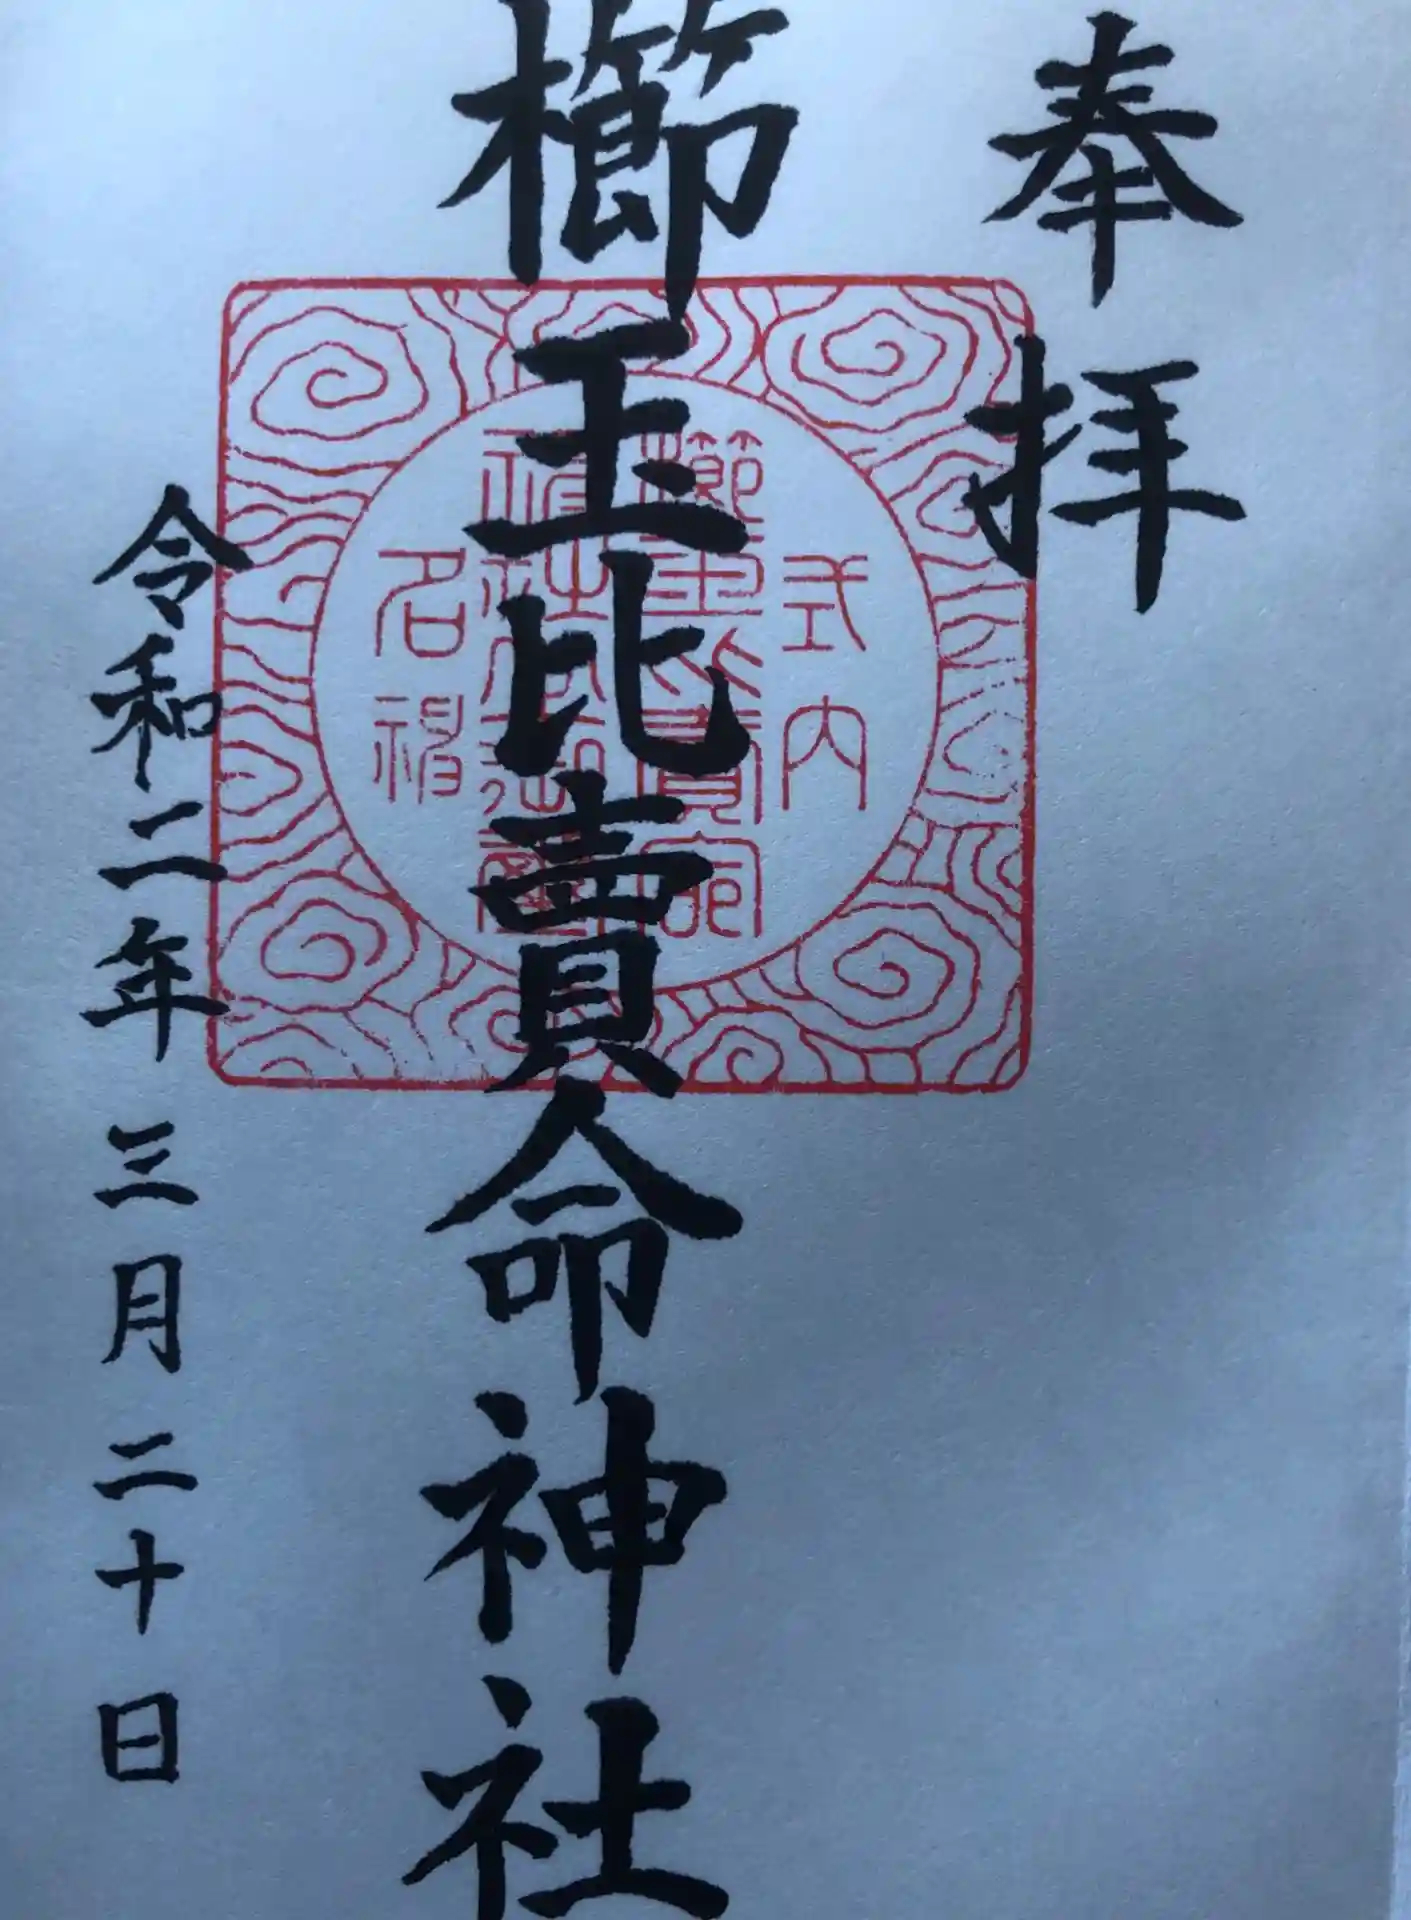 奉拝
櫛玉比賣命神社
令和二年三月二十日
式内
櫛玉比賣命
名神